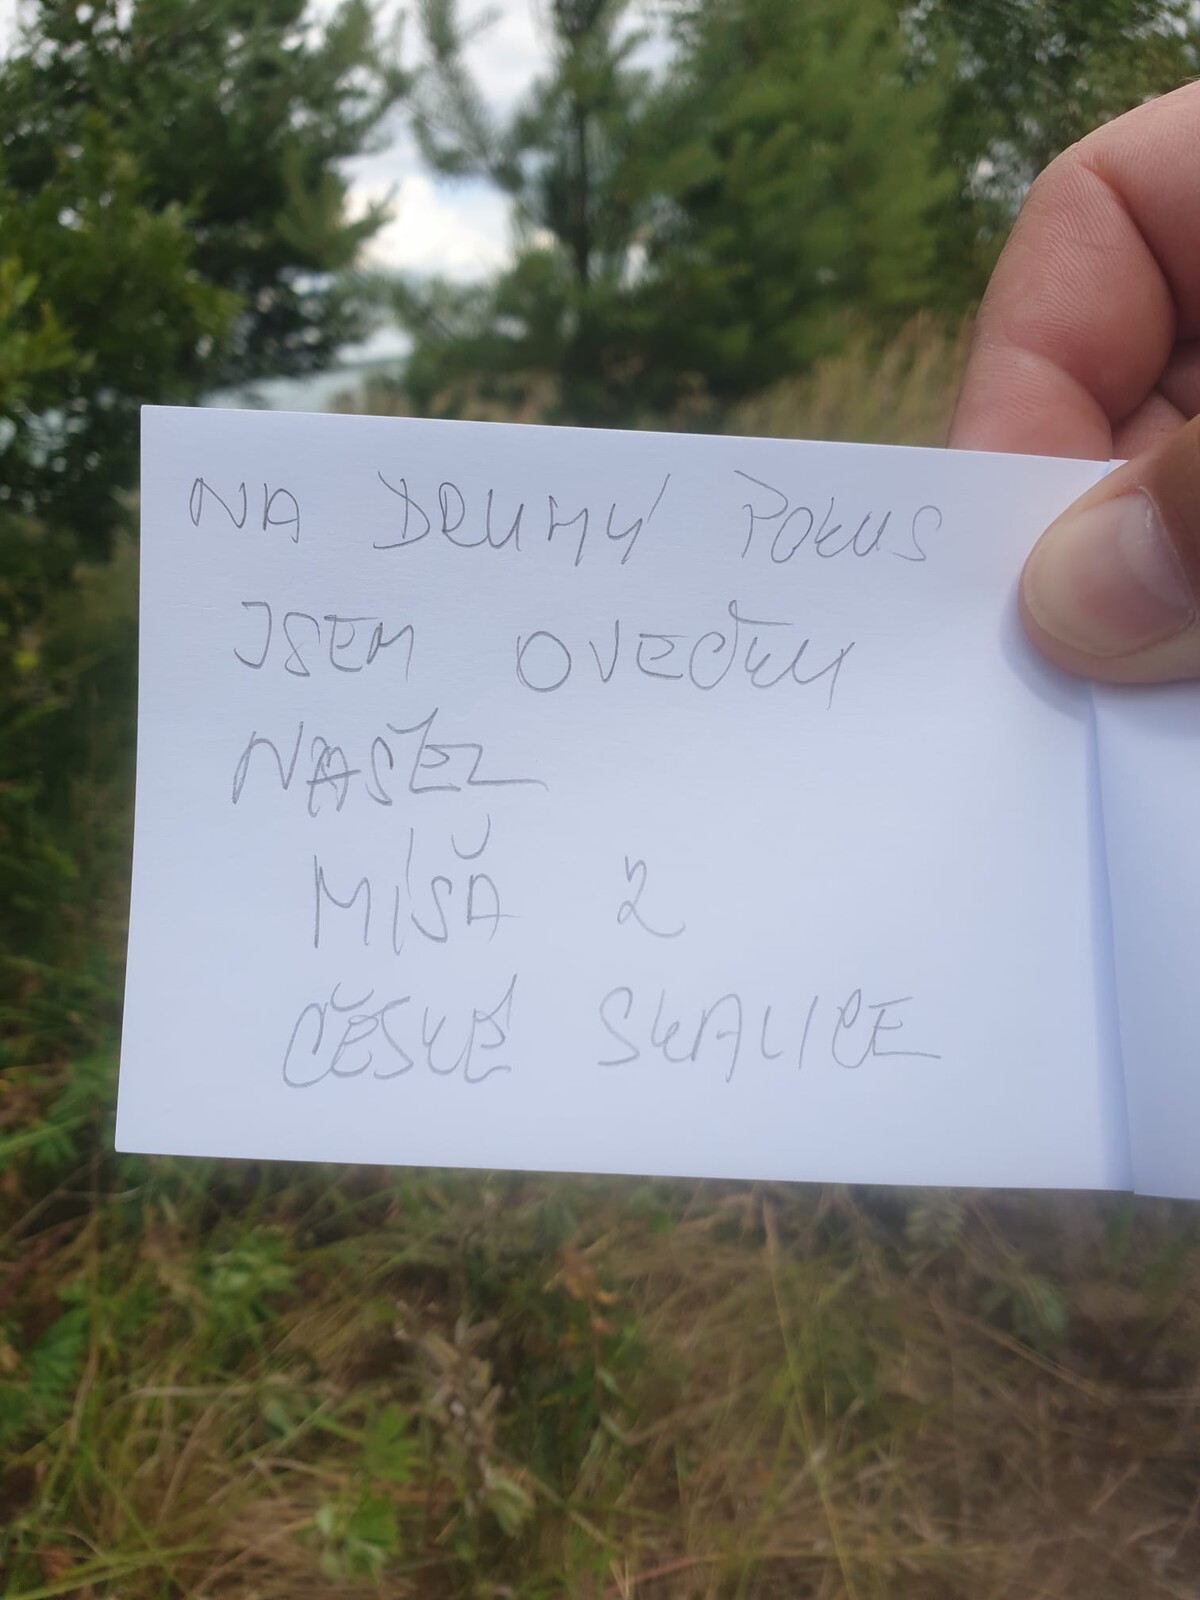 NA DRUHÝ POKUS
JSEM OVEČKU
NAŠEL
MÍŠA Z
ČESKÉ SKALICE